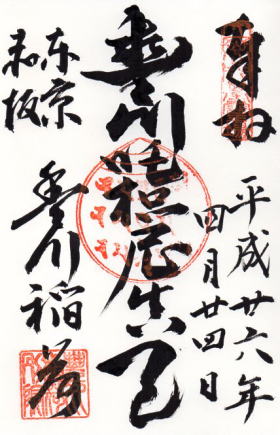 奉拝
平成廿六年
四月廿四日
豊川吒枳尼真天
東京
赤坂
豊川稲荷